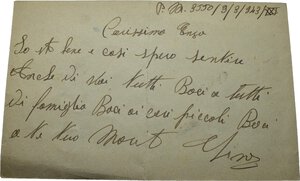 P. M. 3550/9/9/943/XXI
Carissimo Enzo
Io sto bene e così spero sentire
Anche di voi tutti Baci a tutti
di famiglia Baci ai cari piccoli Baci
a te tuo
Gino